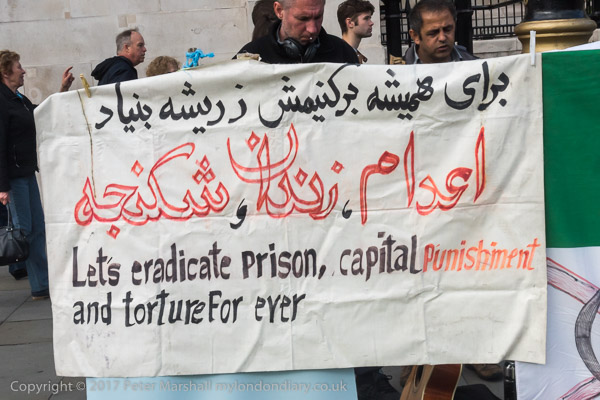 برای همیشه برکنیمش ز ریشه بنیاد
اعدام، زندان، شکنجه
Let's eradicate prison, capital Punishment
and torture For ever
Copyright © 2017 Peter Marshall mylondondiary.co.uk